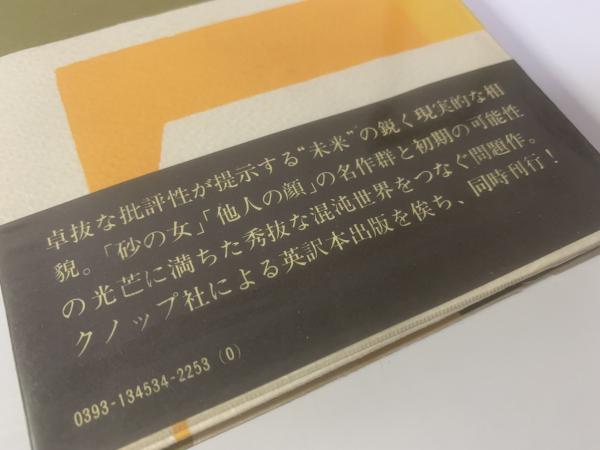 卓抜な批評性が提示する“未来”の鋭く現実的な相
貌。「砂の女」「他人の顔」の名作群と初期の可能性
の光芒に満ちた秀抜な混沌世界をつなぐ問題作。
クノップ社による英訳本出版を俟ち、同時刊行！
0393-134534-2253 (0)